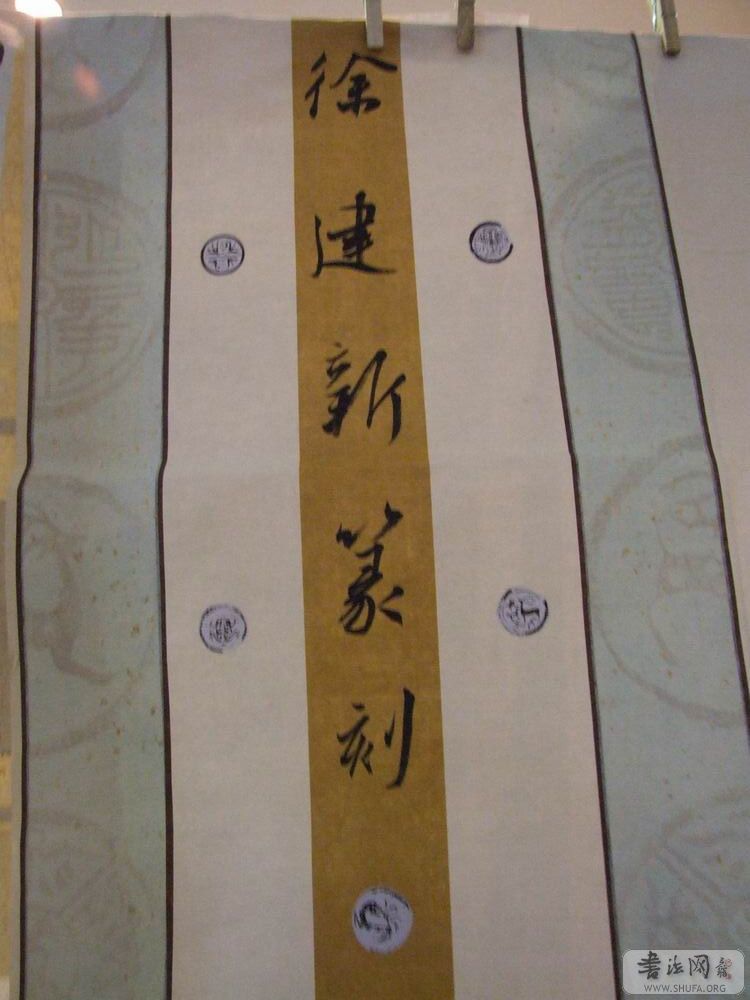 徐建新篆刻
书法网
WWW.SHUFA.ORG